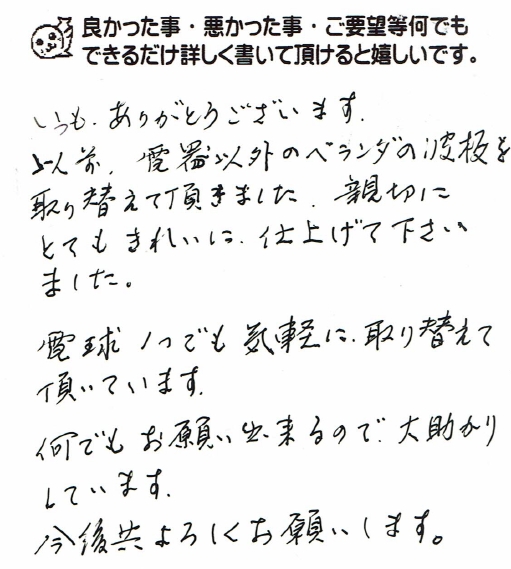 良かった事・悪かった事・ご要望等何でも
できるだけ詳しく書いて頂けると嬉しいです。
いつも、ありがとうございます。
以前、電器以外のベランダの波板を
取り替えて頂きました。親切に
とてもきれいに、仕上げて下さい
ました。
電球1つでも気軽に、取り替えて
頂いています。
何でもお願い出来るので、大助かり
しています。
今後共よろしくお願いします。